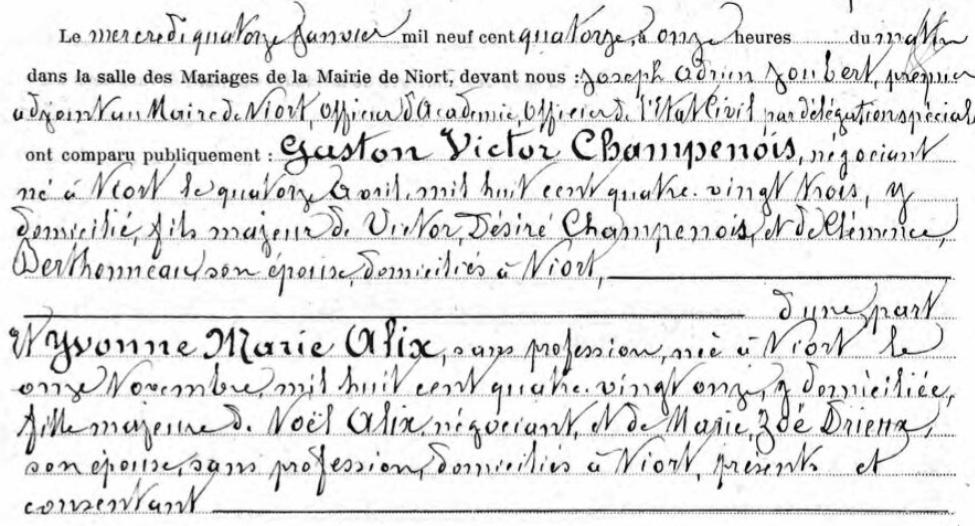 Le mercredi quatorze Janvier mil neuf cent quatorze, à onze heures du matin
dans la salle des Mariages de la Mairie de Niort, devant nous : Joseph Adrien Joubert, premier
adjoint au Maire de Niort, Officier d'Académie, Officier de l'Etat Civil par délégation spéciale
ont comparu publiquement : Gaston Victor Champenois, négociant
né à Niort le quatorze Avril mil huit cent quatre-vingt trois, y
domicilié, fils majeur de Victor, Désiré Champenois, et de Clémence,
Berthonneau, son épouse, domiciliés à Niort,
d'une part
Et Yvonne Marie Alix, sans profession, née à Niort le
onze Novembre mil huit cent quatre-vingt onze, y domiciliée,
fille majeure de Noël Alix, négociant, et de Marie, Zoé Drieux,
son épouse, sans profession, domiciliés à Niort, présents et
consentant